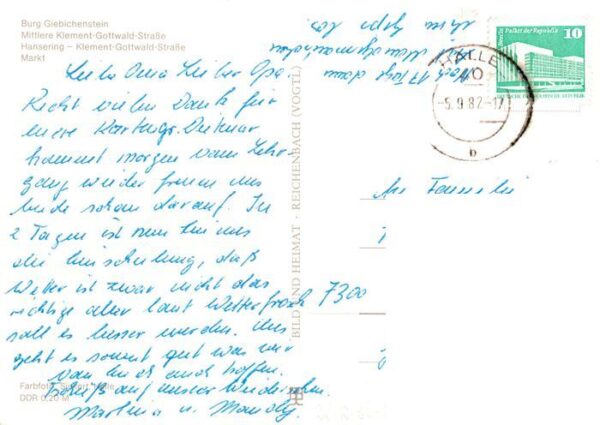 Burg Giebichenstein
Mittlere Klement-Gottwald-Straße
Hansering – Klement-Gottwald-Straße
Markt
Liebe Oma Lieber Opa.
Recht vielen Dank für
eure Kartengr. Dietmar
kommt morgen vom Lehr-
gang wieder freuen uns
beide schon darauf. In
2 Tagen ist nun bei uns
die Einschulung, das
Wetter ist zwar nicht das
richtige aber laut Wetterfrosch
soll es besser werden. Uns
geht es sonst gut was wir
von euch auch hoffen.
auf unser Wiedersehen
Martina u. Mandy
noch 17 Tage dann
ihr Opa
BILD UND HEIMAT · REICHENBACH (VOGTL)
HALLE
-5.9.82-17
b
Berlin Palast der Republik
10
DEUTSCHE DEMOKRATISCHE REPUBLIK
An Familie
7300
Farbfoto:
DDR 0,20 M